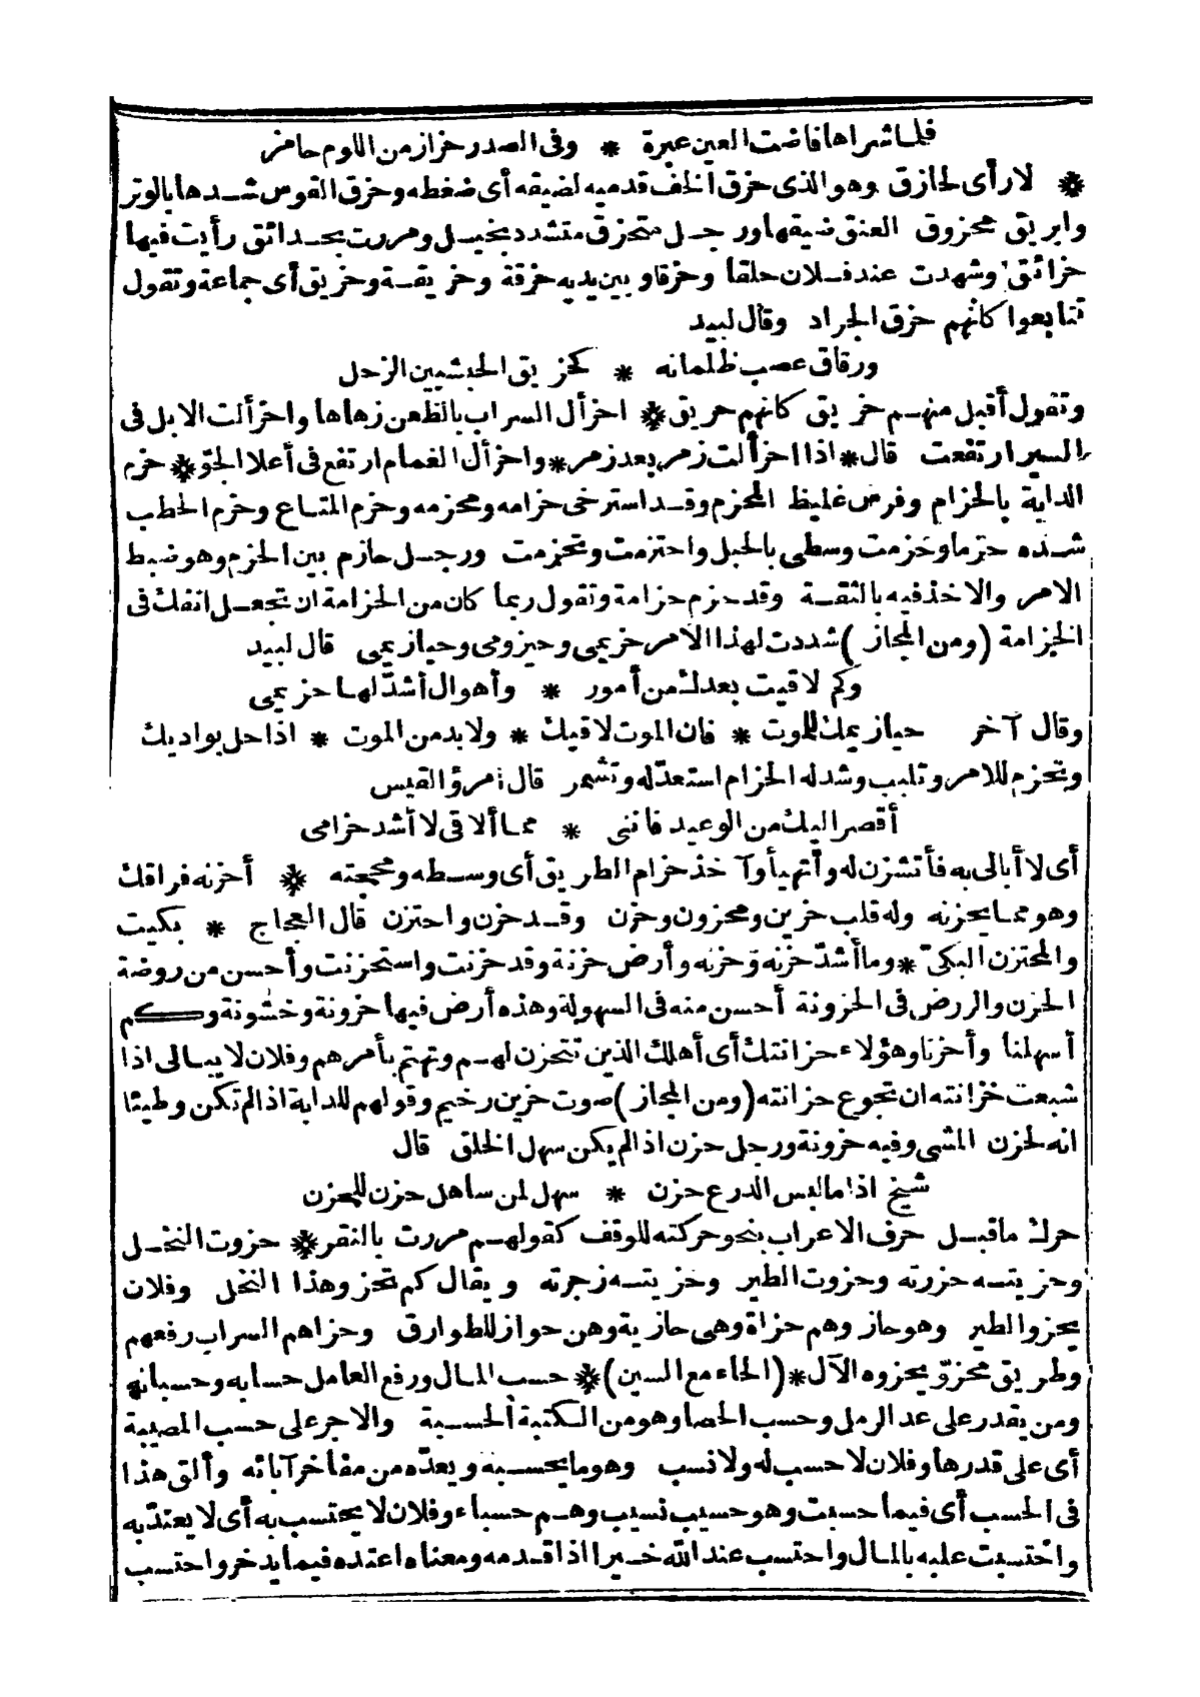 فلما شراها فاضت العين عبرة * وفى الصدر حزاز من اللوم حامز
* لا رأى لحازق وهو الذى حزق الخف قدميه لضيقه أى ضغطه وحزق القوس شدها بالوتر
وابريق محزوق العنق ضيقها ورجل متحزق متشدد بخيل ومررت بحدائق رأيت فيها
حزائق وشهدت عند فلان حلقا وحزقا وبين يديه حزقة وحزيقة وحزيق أى جماعة وتقول
تتابعوا كأنهم حزق الجراد وقال لبيد
ورقاق عصب ظلمانه * كحزيق الحبشيين الزجل
وتقول أقبل منهم حزيق كانهم حريق * احزأل السراب بالظعن زهاها واحزألت الابل فى
السير ارتفعت قال * اذا احزألت زمر بعد زمر * واحزأل الغمام ارتفع فى أعلا الجوّ * حزم
الدابة بالحزام وفرس غليظ المحزم وقد استرخى حزامه ومحزمه وحزم المتاع وحزم الحطب
شده حزما وحزمت وسطى بالحبل واحتزمت وتحزمت ورجل حازم بين الحزم وهو ضبط
الامر والاخذ فيه بالثقة وقد حزم حزامة وتقول ربما كان من الحزامة ان تجعل انفك فى
الخزامة (ومن المجاز) شددت لهذا الأمر حزيمى وحيزومى وحيازيمى قال لبيد
وكم لاقيت بعدك من أمور * وأهوال أشدّ لها حزيمى
وقال آخر حيازيمك للموت * فان الموت لاقيك * ولا بد من الموت * اذا حل بواديك
وتحزم للامر وتلبب وشد له الحزام استعدّ له وتشمر قال امرؤ القيس
أقصر اليك من الوعيد فاننى * مما ألاقى لا أشد حزامى
أى لا أبالى به فأتشزن له وأتهيأ وآخذ حزام الطريق أى وسطه ومحجته * أحزنه فراقك
وهو مما يحزنه وله قلب حزين ومحزون وحزن وقد حزن واحتزن قال العجاج * بكيت
والمحتزن البكىّ * وما أشدّ حزنه وحزنه وأرض حزنة وقد حزنت واستحزنت وأحسن من روضة
الحزن والروض فى الحزونة أحسن منه فى السهولة وهذه أرض فيها حزونة وخشونة وكم
أسهلنا وأحزنا وهؤلاء حزانتك أى أهلك الذين تتحزن لهم وتهتم بأمرهم وفلان لا يبالى اذا
شبعت خزانته ان تجوع حزانته (ومن المجاز) صوت حزين رخيم وقولهم للدابة اذا لم تكن وطيئا
انه لحزن المشى وفيه حزونة ورجل حزن اذا لم يكن سهل الخلق قال
شيخ اذا ما لبس الدرع حزن * سهل لمن ساهل حزن للحزن
حرك ما قبل حرف الاعراب بنحو حركته للوقف كقولهم مررت بالنقر * حزوت النخل
وحزيته حزرته وحزوت الطير وحزيته زجرته ويقال كم تحزو هذا النخل وفلان
يحزو الطير وهو حاز وهم حزاة وهى حازية وهن حواز للطوارق وحزاهم السراب رفعهم
وطريق محزوّ يحزوه الآل * (الحاء مع السين) * حسب المال ورفع العامل حسابه وحسبانه
ومن يقدر على عد الرمل وحسب الحصا وهو من الكتبة الحسبة والاجر على حسب المصيبة
أى على قدرها وفلان لا حسب له ولا نسب وهو ما يحسبه ويعدّه من مفاخر آبائه وألق هذا
فى الحسب أى فيما حسبت وهو حسيب نسيب وهم حسباء وفلان لا يحتسب به أى لا يعتدّ به
واحتسبت عليه بالمال واحتسب عند الله خيرا اذا قدمه ومعناه اعتده فيما يدخر واحتسب